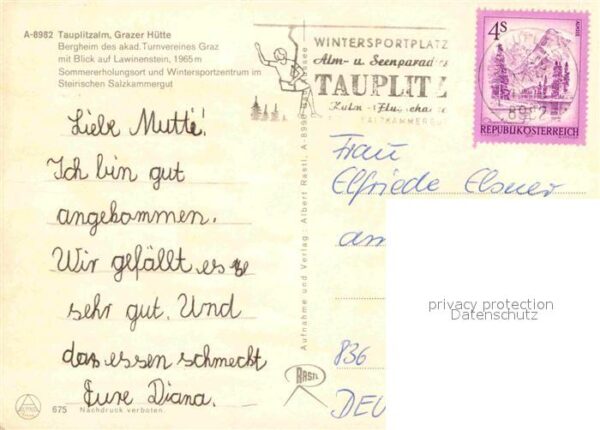 A-8982 Tauplitzalm, Grazer Hütte
Bergheim des akad. Turnvereines Graz
mit Blick auf Lawinenstein, 1965 m
Sommererholungsort und Wintersportzentrum im
Steirischen Salzkammergut
WINTERSPORTPLATZ
Alm- u. Seenparadies
TAUPLITZ
Kulm - Flugschanze
SALZKAMMERGUT
4S
8982
REPUBLIK ÖSTERREICH
Liebe Mutti!
Ich bin gut
angekommen.
Wir gefällt es
sehr gut. Und
das essen schmeckt
Eure Diana.
Frau
Elfriede Elsner
am
836
DEU
Aufnahme und Verlag: Albert Rastl, A-8990
RASTL
675 Nachdruck verboten.
privacy protection
Datenschutz